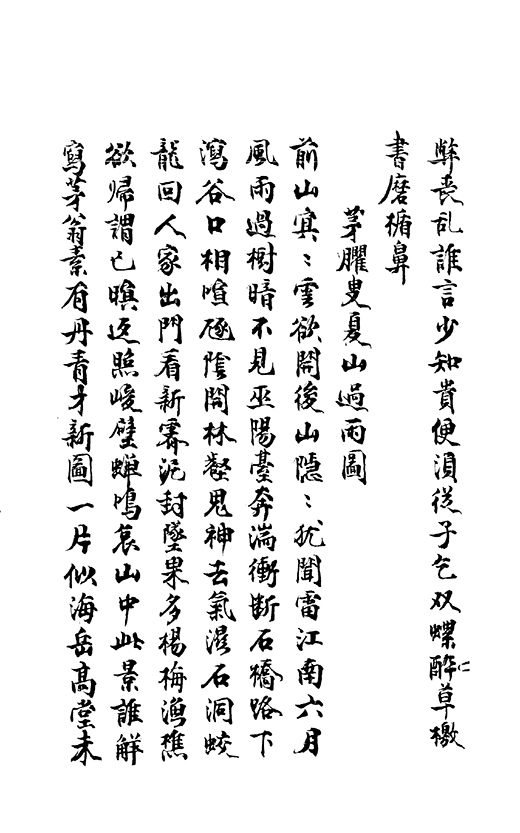 弊喪乱誰言少知貴便湏從子乞双螺醉草檄
書磨楯鼻
茅臞叟夏山過雨圖
前山㝠：雲欲開後山隠：犹聞雷江南六月
風雨過樹暗不見巫陽臺奔湍衝断石橋路下
瀉谷口相喧豗陰開林壑鬼神去氣濕石洞蛟
龍回人家出門看新霽泥封墜果多楊梅漁樵
欲歸謂已暝返照峻壁蝉鳴哀山中此景誰觧
寫茅翁素有丹青才新圖一片似海岳髙堂未